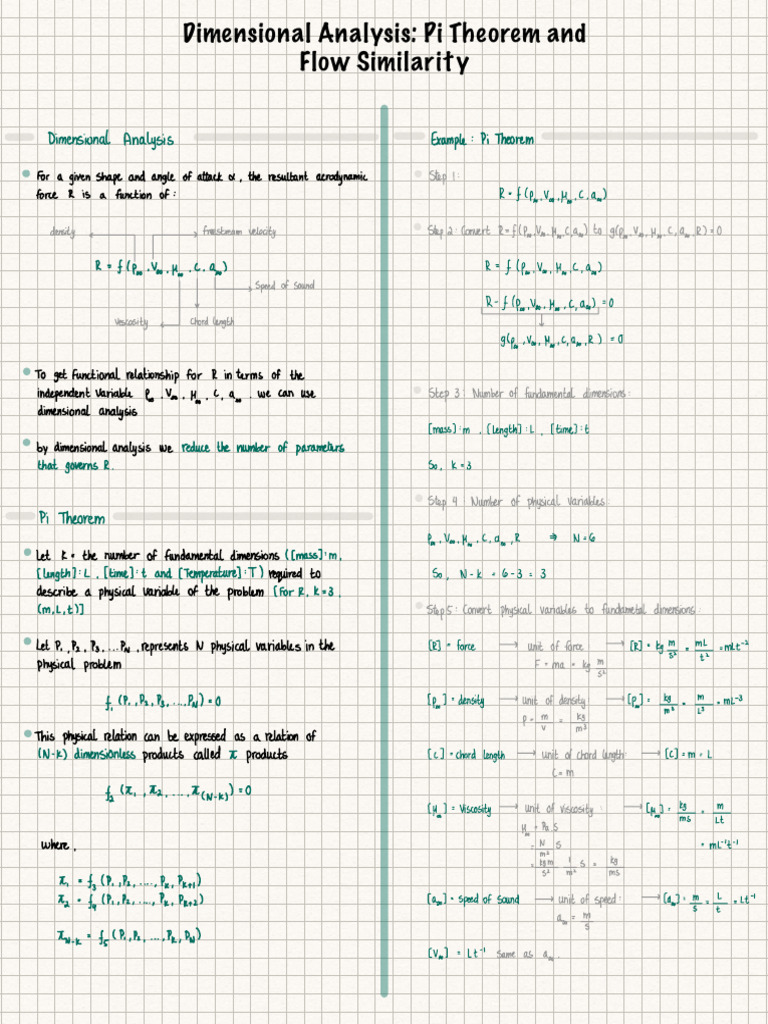 Dimensional Analysis: Pi Theorem and
Flow Similarity
Dimensional Analysis
For a given shape and angle of attack α, the resultant aerodynamic
force R is a function of:
density
freestream velocity
R = f (ρ∞, V∞, μ∞, c, a∞)
Speed of sound
Viscosity
Chord length
To get functional relationship for R in terms of the
independent variable ρ∞, V∞, μ∞, C, a∞. we can use
dimensional analysis
by dimensional analysis we reduce the number of parameters
that governs R.
Pi Theorem
Let K = the number of fundamental dimensions ([mass]:m,
[length]:L, [time]:t and [Temperature]:T) required to
describe a physical variable of the problem [For R, K=3,
(m,L,t)]
Let P₁, P₂, P₃, ...Pₙ, represents N physical variables in the
physical problem
f₁ (P₁, P₂, P₃, ..., Pₙ) = 0
This physical relation can be expressed as a relation of
(N-K) dimensionless products called π products
f₂ (π₁, π₂, ..., π(N-K)) = 0
where,
π₁ = f₃ (P₁, P₂, ...., Pₖ, Pₖ₊₁)
π₂ = f₄ (P₁, P₂, ...., Pₖ, Pₖ₊₂)
π_N-K = f₅ (P₁, P₂, ..., Pₖ, Pₙ)
Example: Pi Theorem
Step 1:
R = f (ρ∞, V∞, μ∞, C, a∞)
Step 2: Convert R=f(ρ∞, V∞, μ∞, C, a∞) to g(ρ∞, V∞, μ∞, C, a∞, R) = 0
R = f (ρ∞, V∞, μ∞, C, a∞)
R - f (ρ∞, V∞, μ∞, C, a∞) = 0
g(ρ∞, V∞, μ∞, C, a∞, R) = 0
Step 3: Number of fundamental dimensions:
[mass]:m, [length]:L, [time]:t
So, K=3
Step 4: Number of physical variables:
ρ∞, V∞, μ∞, C, a∞, R ⇒ N=6
So, N-K = 6-3 = 3
Step 5: Convert physical variables to fundametal dimensions
[R] = force → unit of force → [R] = kg m/s² = mL/t² = mLt⁻²
F = ma = kg m/s²
[ρ∞] = density → unit of density → [ρ∞] = kg/m³ = m/L³ = mL⁻³
ρ = m/v = kg/m³
[C] = chord length → unit of chord length: → [C] = m = L
C = m
[μ∞] = Viscosity → unit of viscosity: → [μ∞] = kg/ms = m/Lt
μ∞ = Pa S
= N/m² S = mL⁻¹t⁻¹
= kgm/s² 1/m² S = kg/ms
[a∞] = speed of sound → unit of speed: → [a∞] = m/s = L/t = Lt⁻¹
a∞ = m/s
[V∞] = Lt⁻¹ same as a∞.